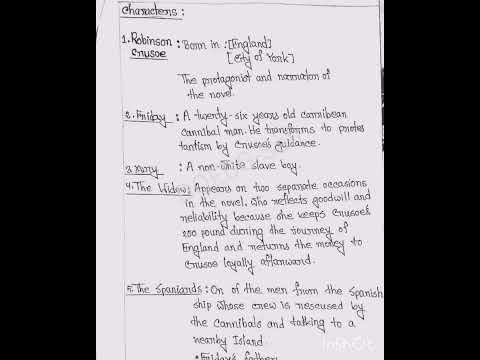 Characters :
1. Robinson Crusoe : Born in : [England]
[City of York]
The protagonist and narrator of
the novel.
2. Friday : A twenty-six years old carribean
cannibal man. He transforms to protes
tantism by Crusoe's guidance.
3. Xury : A non-white slave boy.
4. The Widow : Appears on two separate occasions
in the novel. Who reflects goodwill and
reliability because she keeps Crusoe's
200 pound during the journey of
England and returns the money to
Crusoe loyally afterward.
5. The Spaniards : On of the men from the Spanish
ship whose crew is rescued by
the cannibals and talking to a
nearby Island.
• Friday's father
InShOt